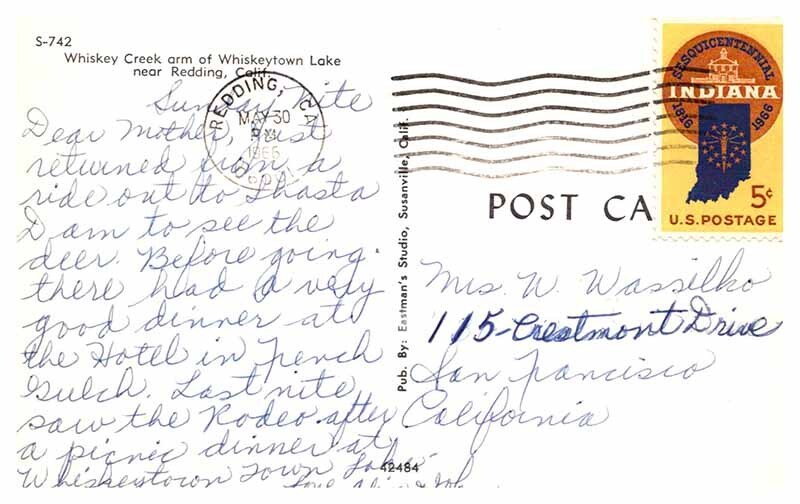 S-742
Whiskey Creek arm of Whiskeytown Lake
near Redding, Calif.
Sunday Nite
Dear Mother, Just
returned from a
ride out to Shasta
Dam to see the
deer. Before going
there had a very
good dinner at
the Hotel in French
Gulch. Last nite
saw the Rodeo after
a picnic dinner at
Whiskeytown Town Lake.
Love
REDDING, CA
MAY 30
PM
1966
Pub. By: Eastman's Studio, Susanville, Calif.
POST CA
SESQUICENTENNIAL
INDIANA
1816 1966
5¢
U.S. POSTAGE
Mrs. W. Wassilko
115-Crestmont Drive
San Francisco
California
42484